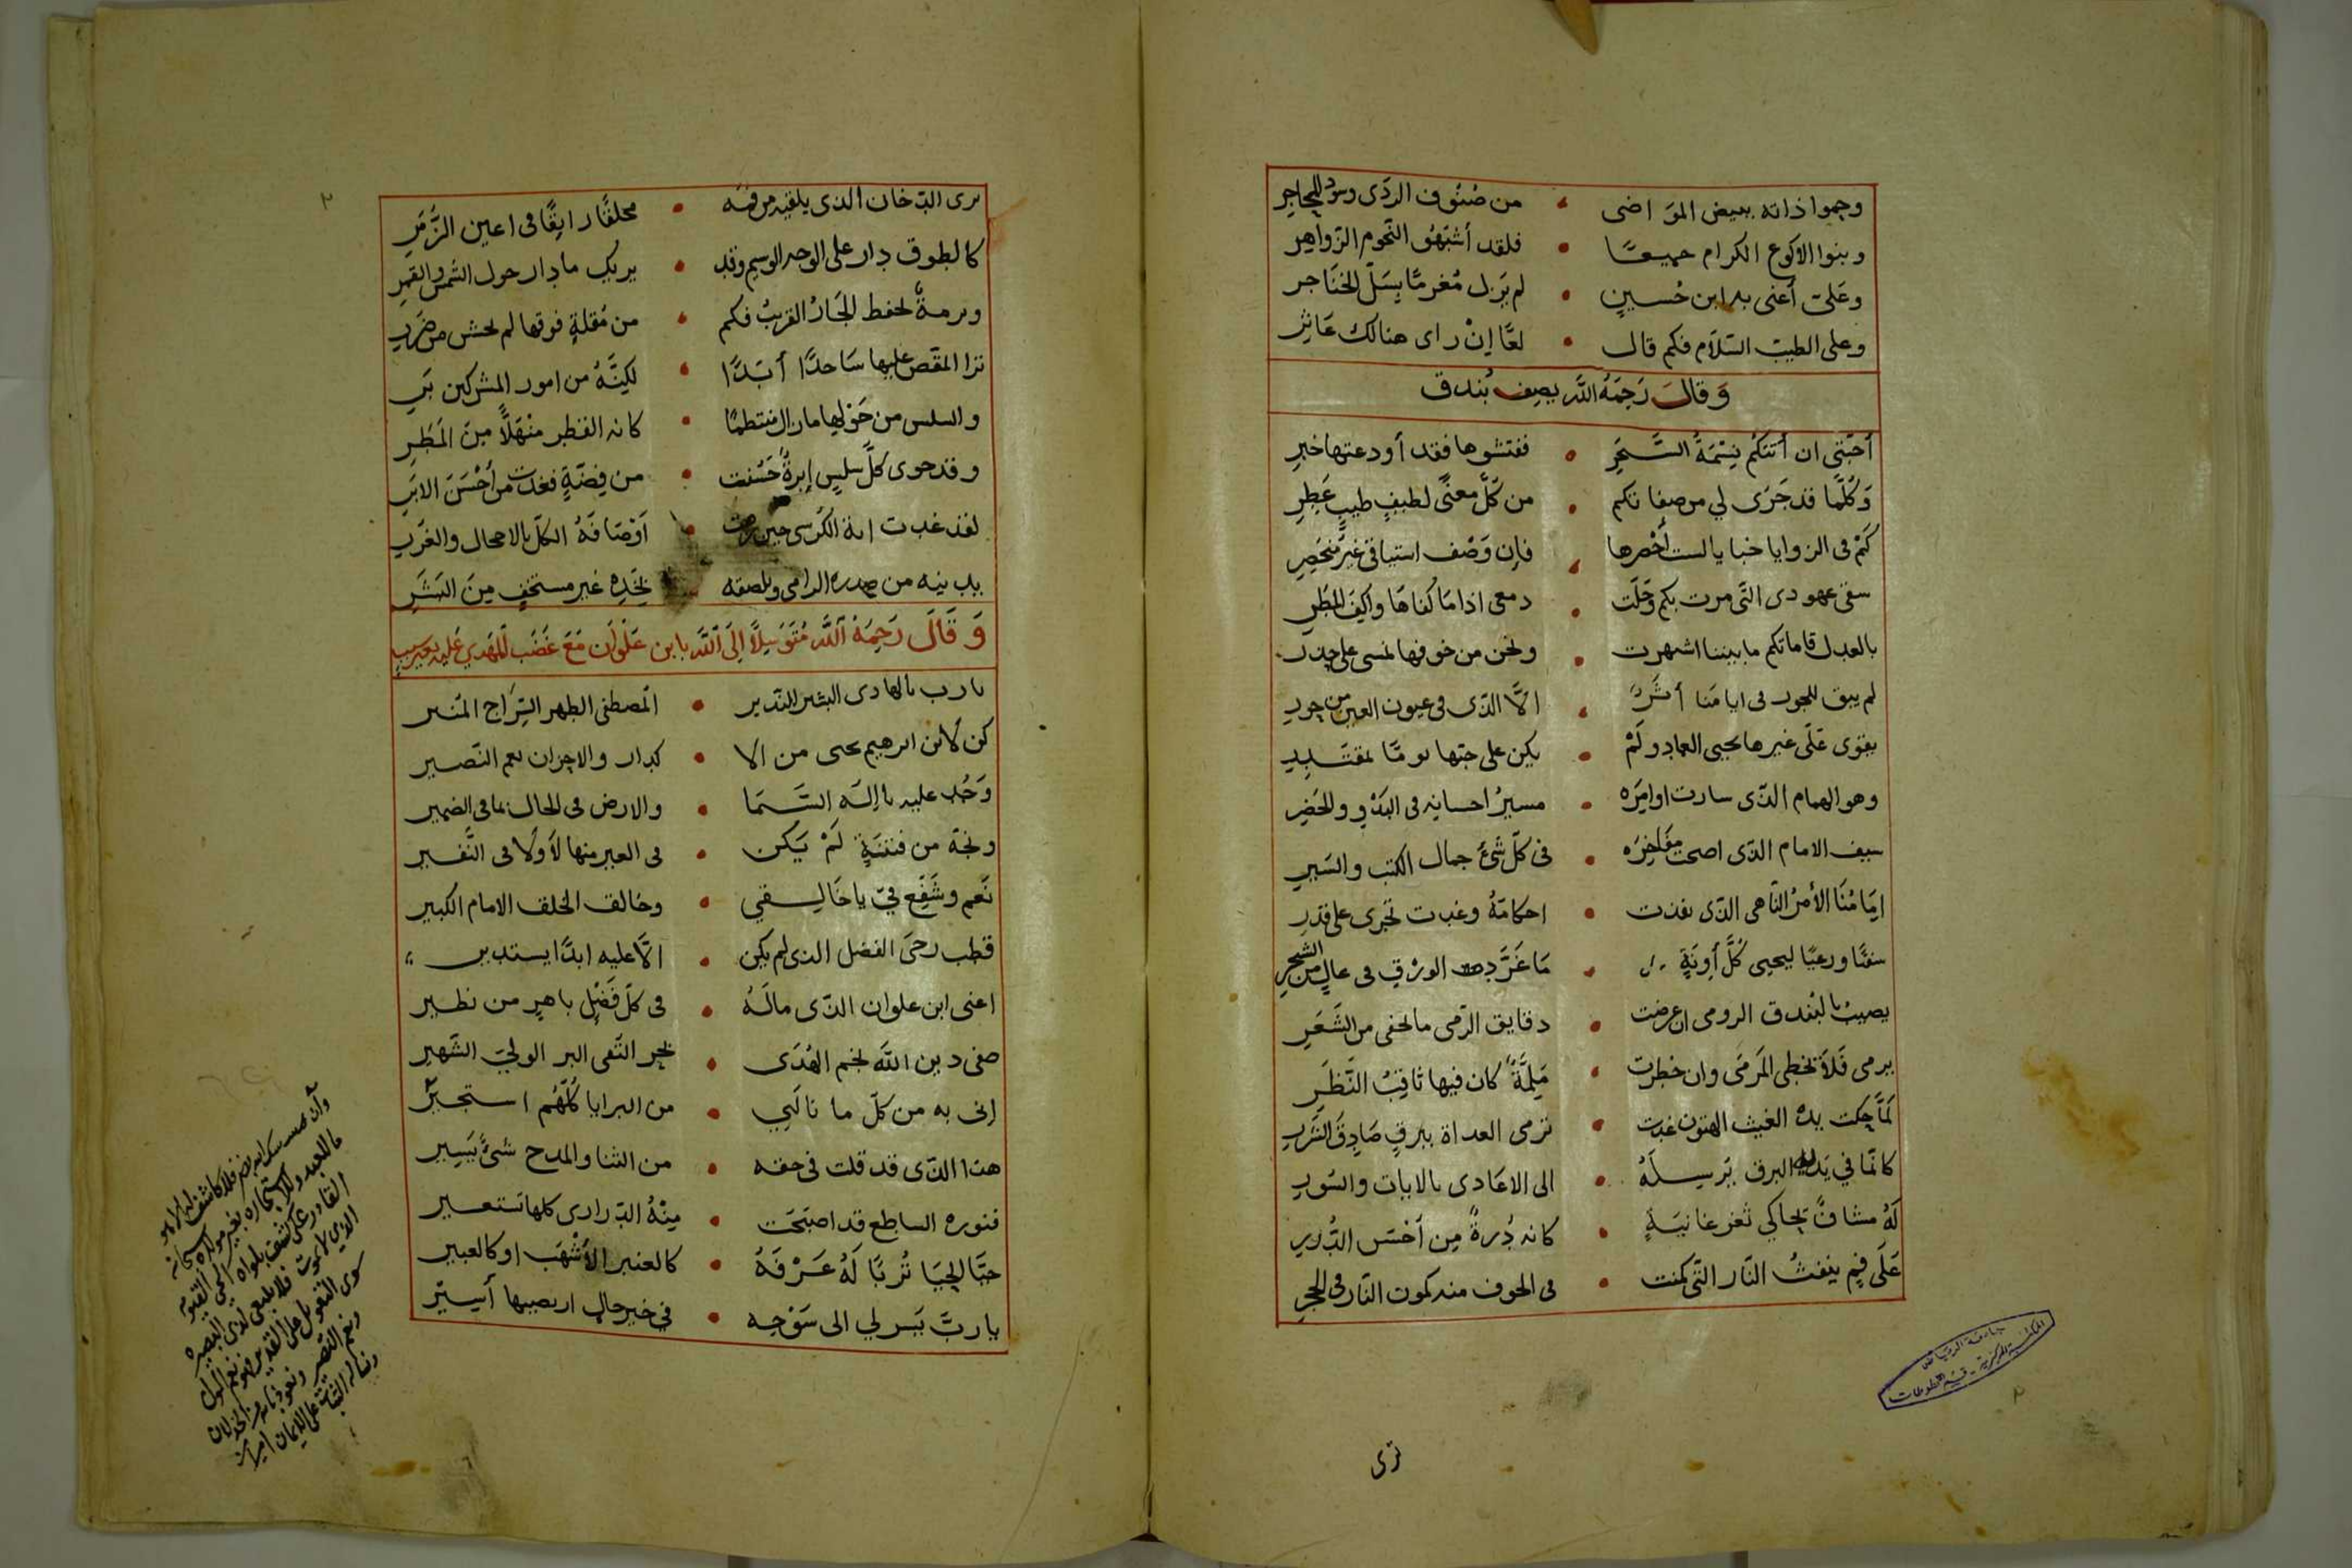 وحموا ذاته ببيض المواضى • من صنوف الردى وسود المحاجر
وبنوا الاكوع الكرام جميعًا • فلقد أشبهوا النجوم الزواهر
وعَلىّ أعنى به ابن حُسينٍ • لم يَزل مُغرمًا بِسَلّ الخنَاجر
وعلى الطيب السّلام فكم قال • لعًا إنْ راى هنالك عَاثر
وَقالَ رَحِمَهُ اللَّه يصِف بُندق
أحبّتى ان أتتكم نِسْمَةُ السَّحَرِ • ففتشوها فقد أودعتها خبرِ
وَكُلّمَا قد جَرَى لي من صفاتكم • من كلّ معنًى لطيفٍ طيبٍ عَطِرِ
كَمْ فى الزوايا خبايا لست أحْصرها • فإن وَصْف اشتياقى غيرُ منحَصِرِ
سقى عهودى التّى مرت بكم وخَلَت • دمعى اذا مَا كفاهَا واكفَ المطَرِ
بالعدل قاماتكم ما بيننا اشتهرت • ونحن من خوفها نمسى على حذر
لم يبق للجور فى ايامنا أثَرٌ • الَّا الذّى فى عيون العين من حور
يقوى عَلَى غيرها يحيى العماد ولَمْ • يكن على حبّها يومًا بمقتدِرِ
وهو الهمام الذّى سارت اوامِرَه • مسيرُ احسانه فى البَدْوِ والحَضِرِ
سيف الامام الذّى اضحت مفَاخِرَه • فى كلّ شئ جمال الكتب والسَيرِ
امِامُنَا الأمرُ النّاهى الذّى نفذت • احكامَهُ وغدت تجرى على قدَرِ
سقيًا ورعيًا ليحيى كُلَّ أونَةٍ • مَا غَرَّدت الورْق فى عالٍ من الشجرِ
يصيبُ بالبُندق الرومى ان عرضت • دقايق الرّمى ما يخفى من الشَعَرِ
يرمى فَلاَ تخطى المَرمَى وان خطرت • مَلِمَّةٌ كان فيها ثاقِبُ النَّظَرِ
لمَّا حكت يده الغيث الهتون غدت • ترمى العداة ببرقٍ صَادِقَ الشررِ
كانمّا في يَدَيه البرق يَرسِلَهُ • الى الاعَادى بالايات والسّورِ
لَهُ مشافٌ يحاكي ثغر غانيَةٍ • كانه دُرةٌ مِن أحْسَنِ الدُّررِ
عَلَى فمٍ ينفثُ النّار التّى كمنت • فى الجوف منه كمون النّار فى الحجرِ
ترى
جامعة الرياض
المكتبة المركزية - قسم المخطوطات
٢
ترى الدّخان الذى يلقيه من فمّه • محلقًا رايقًا فى اعين الزُّمَرِ
كالطوق دار على الوجه الوسيم وقد • يريك ما دار حول الشمس والقمرِ
وبرمةٌ لحفظ الجَارُ القريبُ فكم • من مُقلةٍ فوقها لم تخش من ضررِ
ترا المقصّ عليها سَاجدًا أبَدًا • لكِنَّهُ من امور المشركين بَرِي
والسلس من حَوْلها مازال منتظمًا • كانه القطر منهَلًّا مِنَ المَطَرِ
وقد حوى كلّ سلسٍ إبرةٌ حَسُنت • من فِضّةٍ فغدت من أحْسَنَ الابَرِ
لقد غدت اية الكرسى حين رمت • أوْصَافَهُ الكلّ بالاحجال والغررِ
يدنيه من صدره الرامى ويلصقه • بخَدِّهِ غير مستخفٍ مِنَ البَشَرِ
وَقَالَ رَحِمَهُ اللَّه مُتَوَسِلًا إلَى اللَّه بابن عَلْوَان مَعَ غَضَب المَهدي عَليه بغير سبب
يارب بالهادى البشير النّذير • المصطفى الطهر السِّرَاج المُنير
كن لابن ابرهيم يحيى من الا • كدار والاحزان نعم النّصير
وَجُد عليه يا إلَه السَّمَا • والارض فى الحال بما فى الضمير
ونجّه من فتنَةٍ لَمْ يَكن • فى العير منها لاَ ولَا فى النَّفير
نَعم وشَفِّع فىّ ياخَالِقي • وخالق الخلق الامام الكبير
قطب رحَى الفضل الذى لم يكن • الَّا عليه ابدًا يستدير
اعنى ابن علوان الذّى مالَهُ • فى كلّ فَضْلٍ باهرٍ من نظير
صفى دين اللَّه نجم الهُدَى • بحر التّقى البر الولىّ الشّهير
إنى به من كلّ ما نالَني • من البرايا كلّهُم استجيرْ
هذا الذّى قد قلت فى حقه • من الثنا والمدح شئٌ يَسِير
فنوره الساطع قد اصبَحَت • مِنْهُ الدّرارى كلها تستعير
حبَّا الحَيَا تُربًا لَهُ عَرْفَهُ • كالعنبر الأشْهَب او كالعبير
ياربَّ يَسر لي الى سَوْحِه • في خير حالٍ اربصيها أسيرْ
وأن يمسسك الله بضر فلا كاشف له الا هو
ما للعبد ولاستجاره بغير مولاه سبحانه
القادر على كشف بلواه الحي القيوم
الذي لا يموت فلا ينبغى لذى البصيره
سوى التعويل على القدير فهو نعم المولى
ونعم النصير ونعوذ بالله من الخذلان
ونساله الثبات على الايمان امين